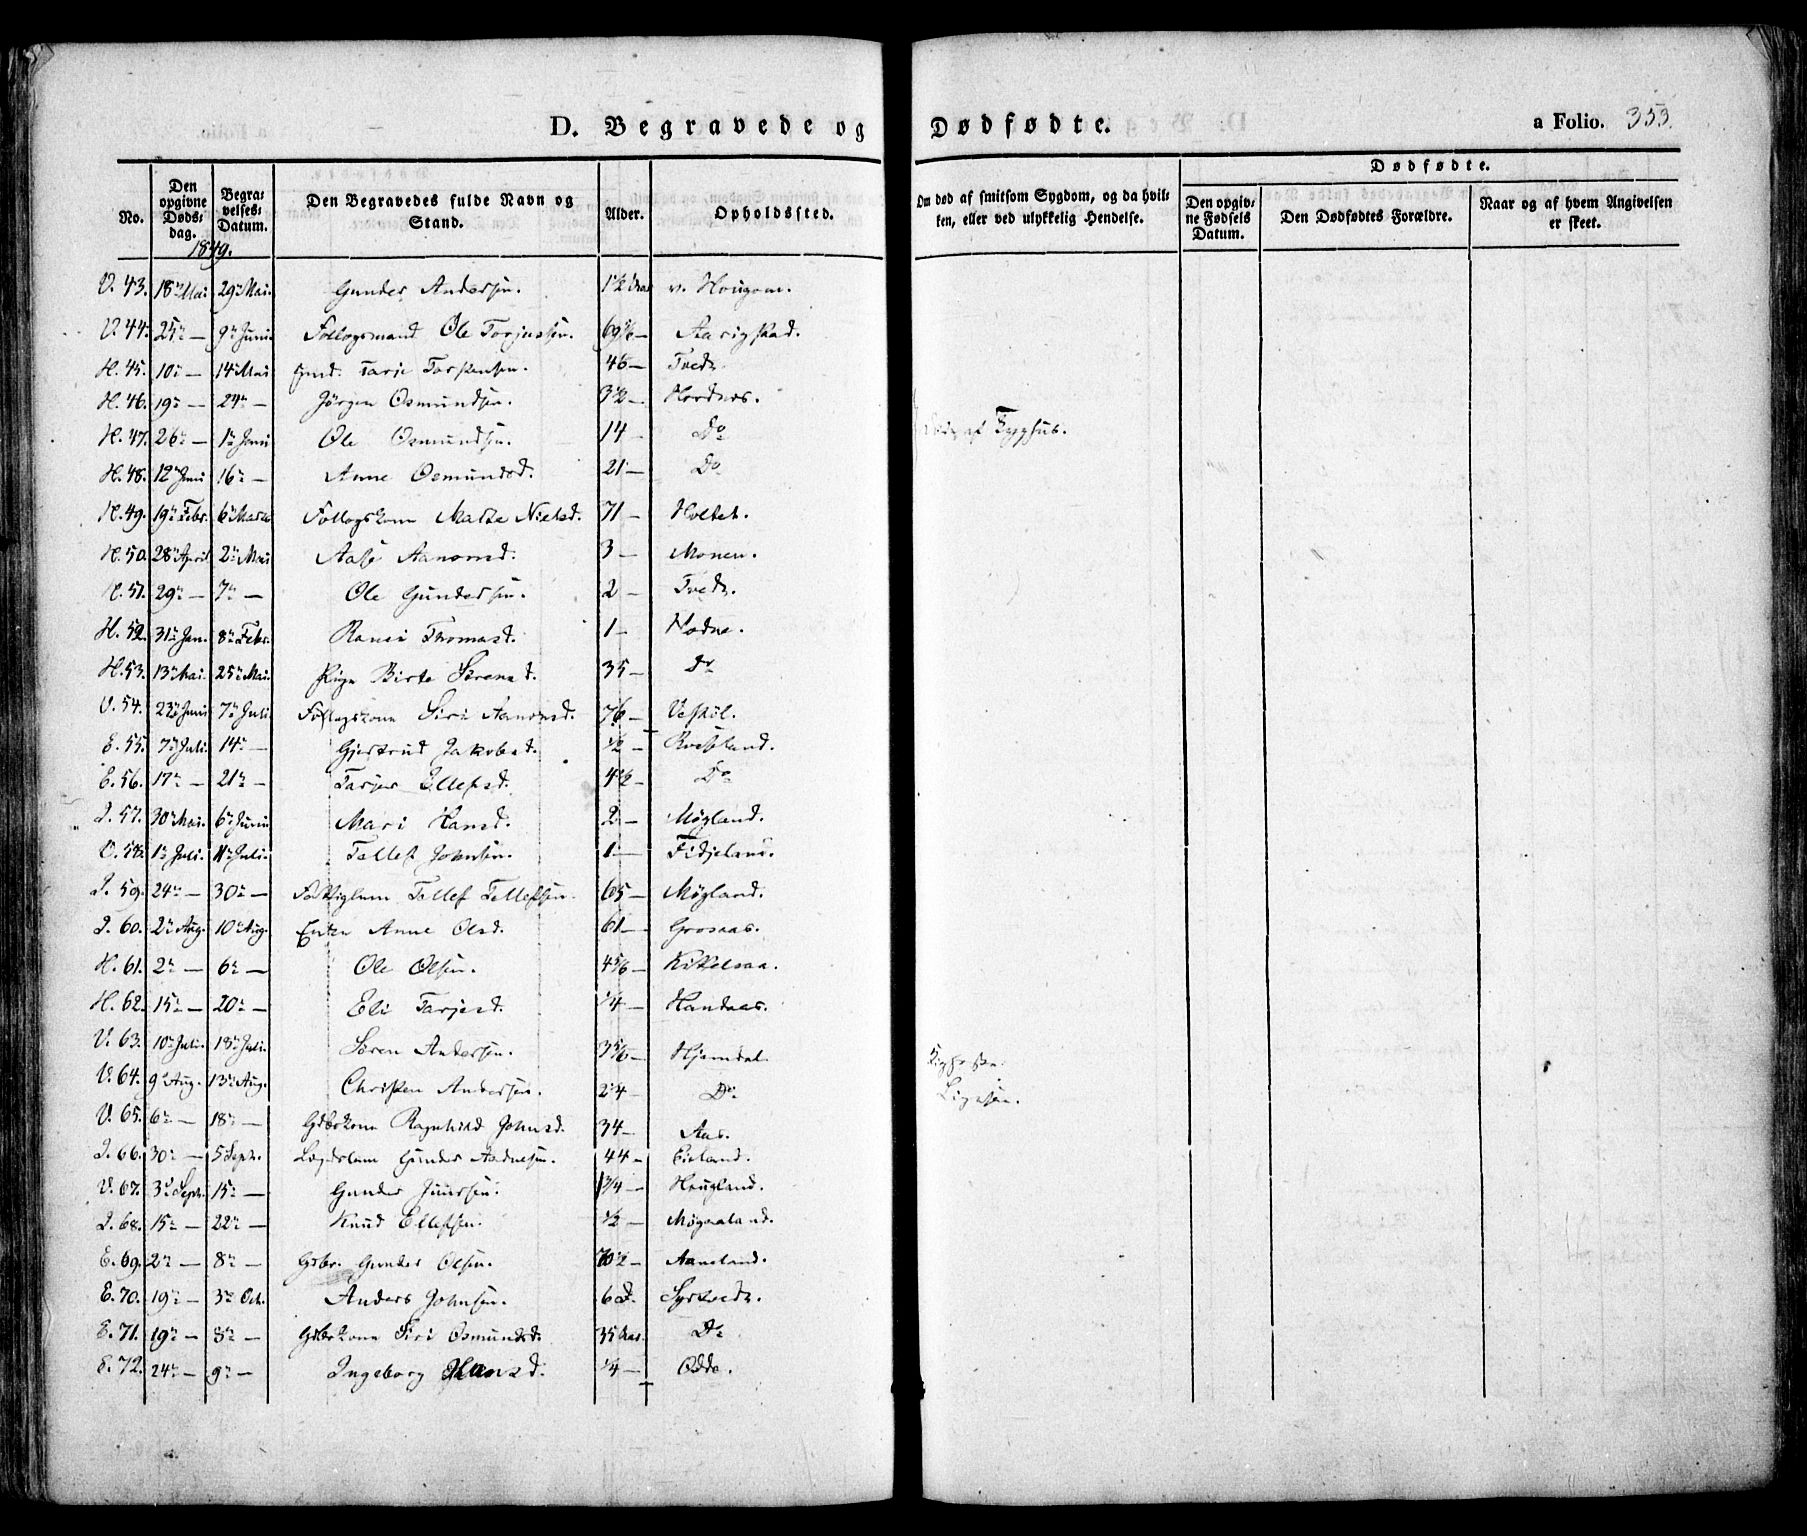 D. Begravede og Dødfødte. a Folio. 353.
No. Den opgivne Døds-dag. Begra-velses-Datum. Den Begravedes fulde Navn og Stand. Alder. Opholdssted. Om død af smitsom Sygdom, og da hvil-ken, eller ved ulykkelig Hendelse. Dødfødte. Den opgiv-ne Fødsels Datum. Den Dødfødtes Forældre. Naar og af hvem Angivelsen er skeet.
1849.
V. 43. 18de Mai 29de Mai. Gunder Andersen. 1½ Aar v. Hougom.
V. 44. 25de — 9de Juni. Follogsmand Ole Torjussen. 69 — Aarigstad.
H. 45. 10de — 14 Mai Tarje Torstensen. 46 — Tvedt.
H. 46. 19de — 24de — Jørgen Osmundsen. 3½ — Hordnes.
H. 47. 26de — 1ste Juni Ole Osmundsen. 14 — Do
H. 48. 12te Juni 16de — Anne Osmundsd. 21 — Do
H. 49. 19de Febr. 6te Marts Follogskone Marte Nielsd. 71 — Holtet.
H. 50. 28de April 2den Mai Aase Aanonsd. 3 — Monen.
H. 51. 29de — 7de — Ole Gundersen. 2 — Tvedt.
H. 52. 31te Jan. 8de Febr. Ranei Thomasd. 1 — Hodne.
H. 53. 13de Mai. 25de Mai. Pige Birte Sørensd. 35 — Do
V. 54. 23de Juni 7de Juli. Follogskone Siri Aanonsd. 76 — Veshöl.
E. 55. 7de Juli. 14de — Gjertrud Jakobsd. ½ — Rossland.
E. 56. 17de — 21de — Tarjer Ellefsd. 4½ — Do
I. 57. 30te Mai. 6te Juni Mari Hansd. 2 — Møgland.
V. 58. 1ste Juli. 11te Juli. Tellef Johnsen. 1 — Fidjeland.
I. 59. 24de — 30te — Fattiglem Tellef Tellefsen. 65 — Møgland.
I. 60. 2den Aug. 10de Aug. Enken Anne Olsd. 61 — Grosaas.
H. 61. 2den — 6te — Ole Olsen. 4 5/6 — Kittelsaa.
H. 62. 15de — 20de — Eli Tarjesd. ¼ — Handaas.
V. 63. 10de Juli. 18de Juli. Søren Andersen. 3 5/6 — Hjemdal.
V. 64. 9de Aug. 13de Aug. Christen Andersen. 24 — Do
V. 65. 6te — 18de — Gdbrkone Ragnhild Johnsd. 34 — Aas.
I. 66. 30te — 5 Septr. Lægdslem Gunder Aadnesen. 44 — Eieland.
V. 67. 3die Septr. 15de — Gunder Juursen. 1¾ — Hougland.
I. 68. 15de — 22de — Knud Ellefsen. ½ — Møgaaland.
E. 69. 2den — 8de — Gdbr. Gunder Olsen. 70½ — Aaneland.
E. 70. 19de — 3die Oct. Anders Johnsen. 6 D. Syrtvedt.
E. 71. 19de — 8de — Gdbrkone Siri Osmundsd. 35 Aar. Do
E. 72. 24de — 9de — Ingeborg Hansd. ¼ — Odde.